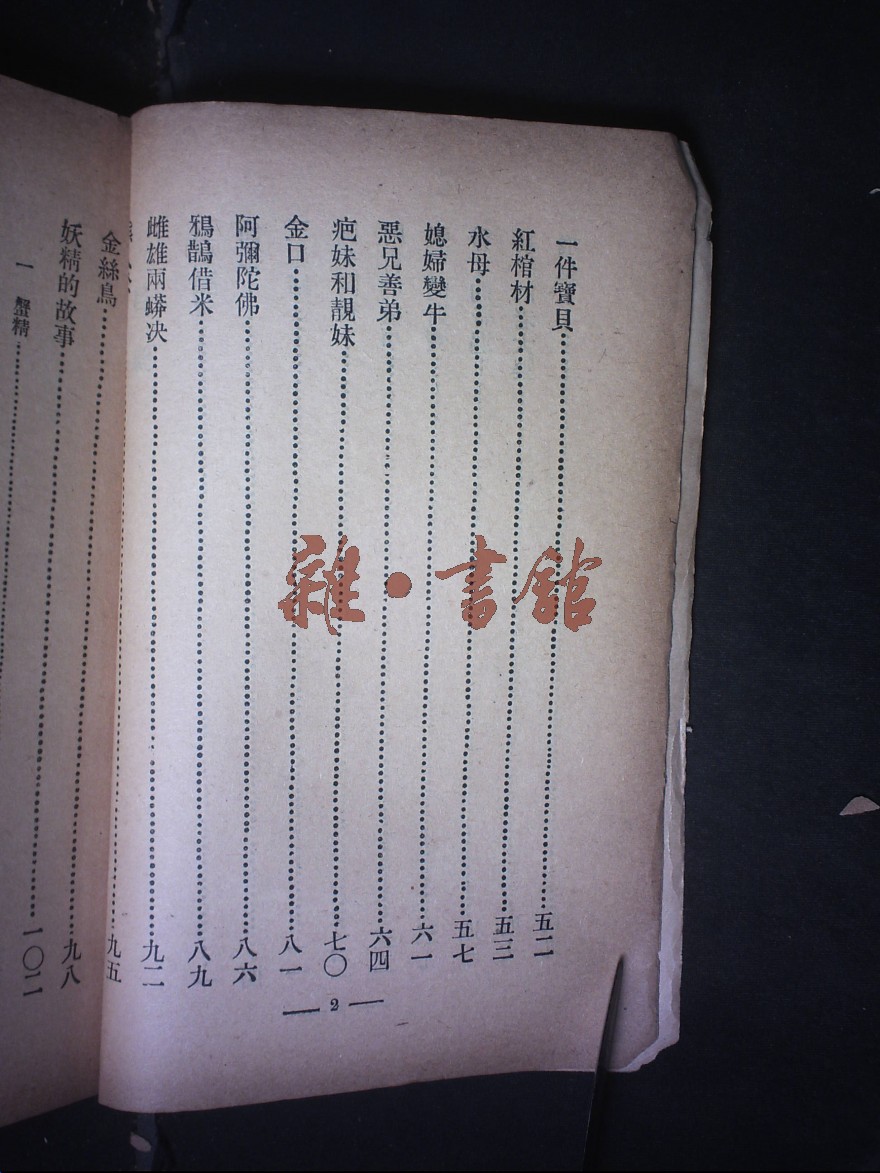 一件寶貝………五二
紅棺材………五三
水母………五七
媳婦變牛………六一
惡兄善弟………六四
疤妹和靚妹………七〇
金口………八一
阿彌陀佛………八六
鴉鵲借米………八九
雌雄兩蟒決………九二
金絲鳥………九五
妖精的故事………九八
一 蟹精………一〇二
— 2 —
雜·書館